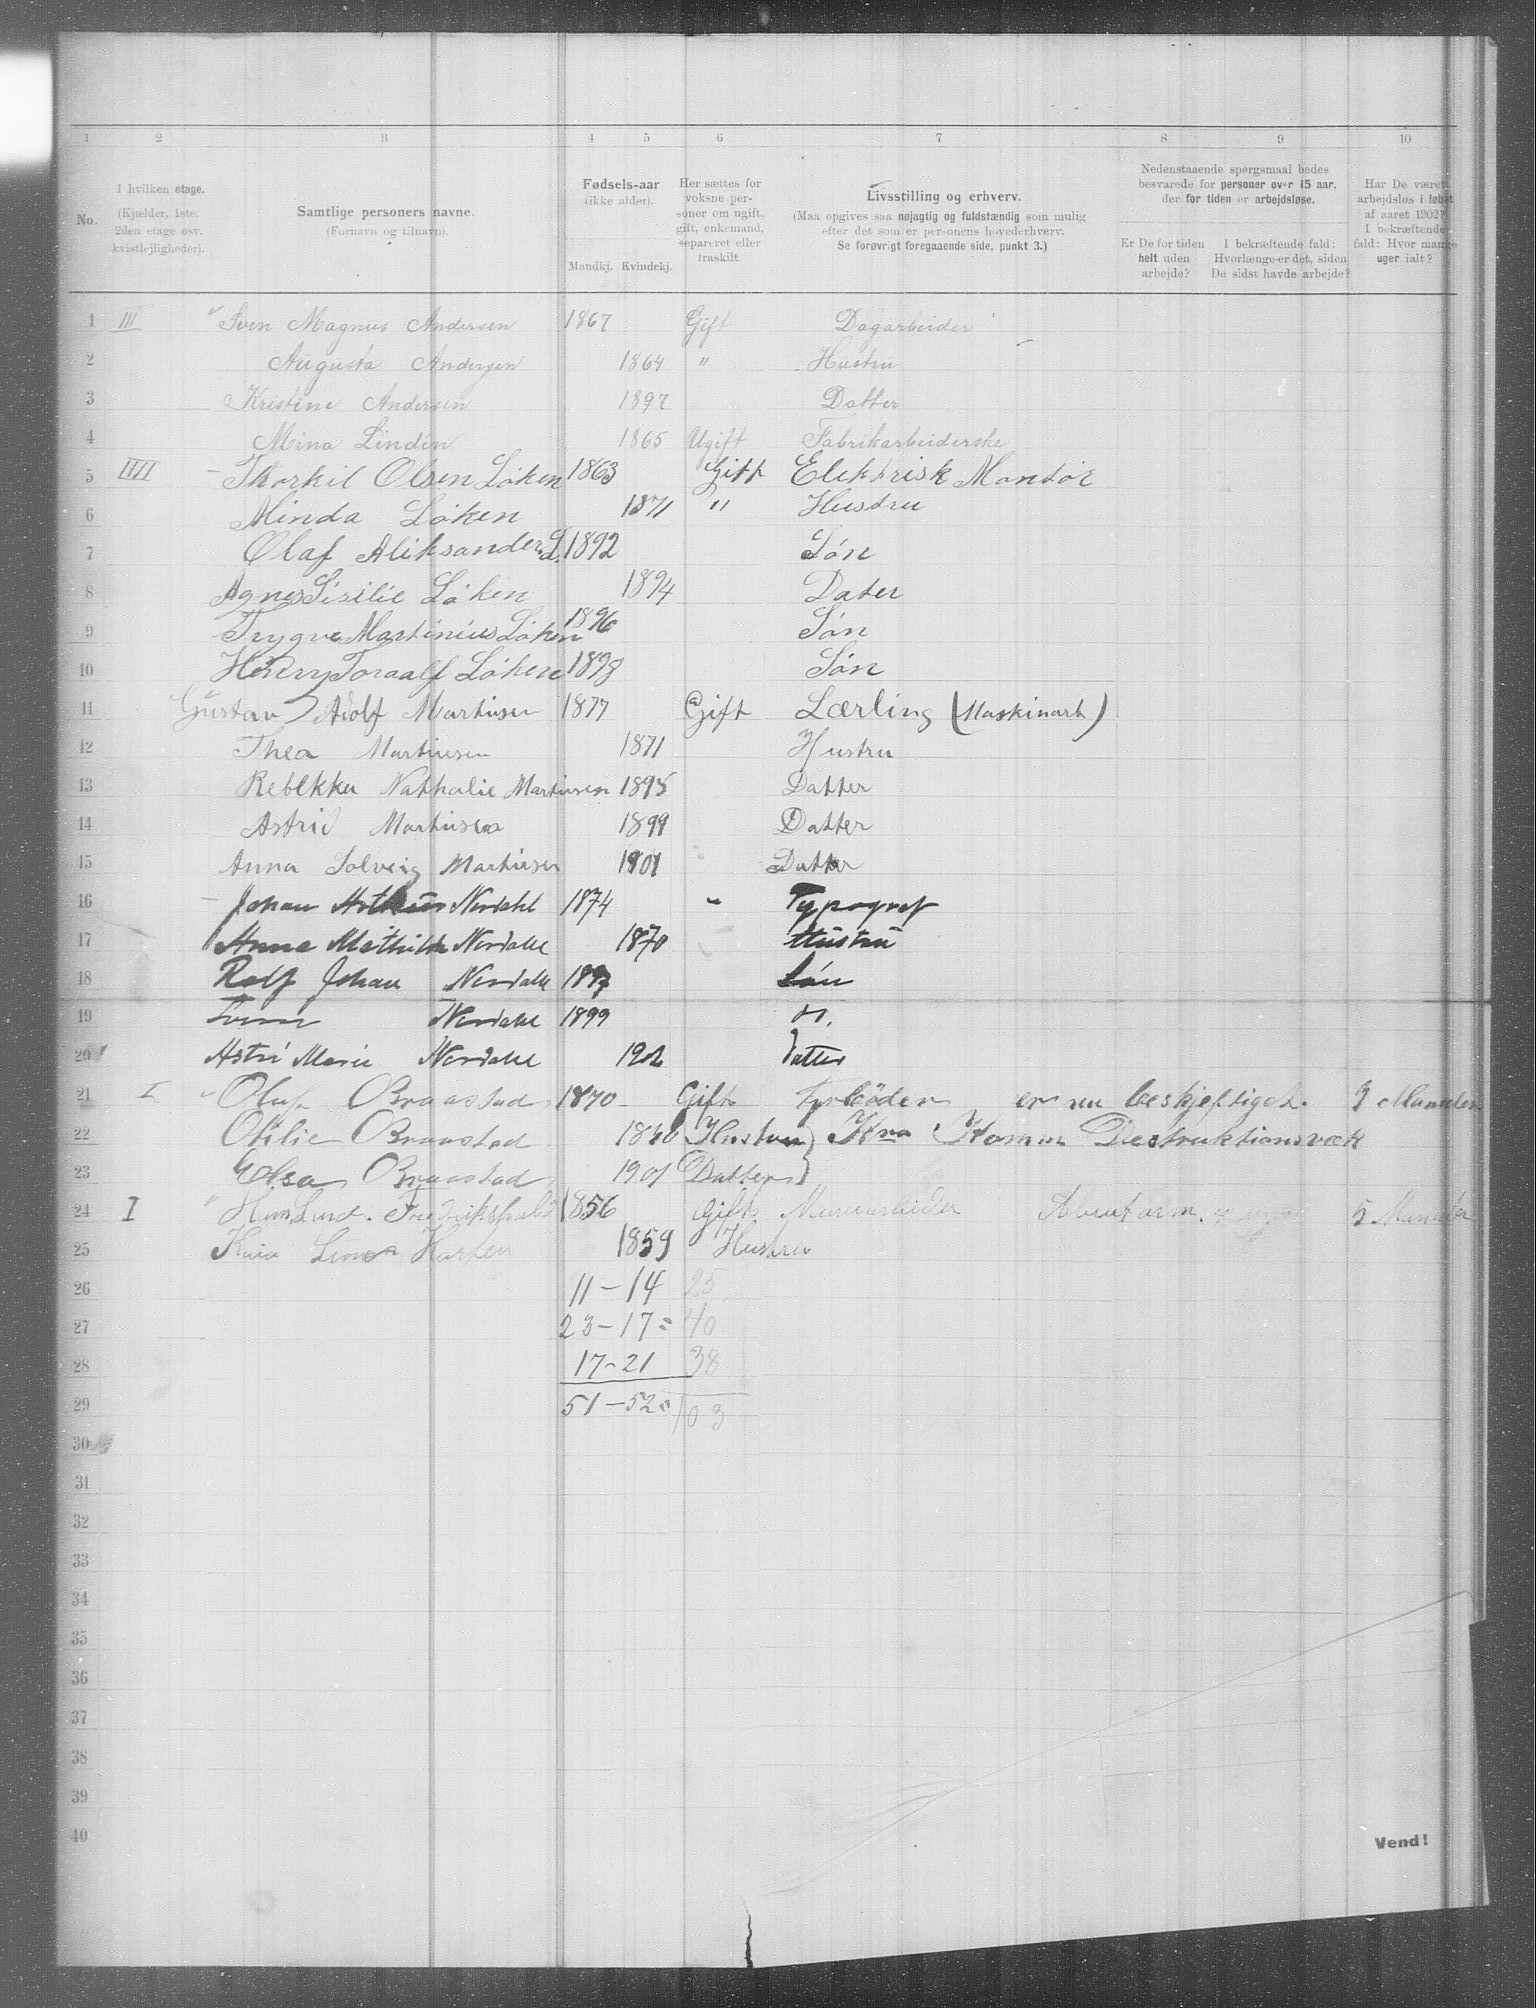 1 2 3 4 5 6 7 8 9 10
No.
I hvilken etage.
(Kjælder, 1ste,
2den etage osv.
kvistlejligheder).
Samtlige personers navne.
(Fornavn og tilnavn).
Fødsels-aar
(ikke alder).
Mandkj. Kvindekj.
Her sættes for
voksne per-
soner om ugift,
gift, enkemand,
separeret eller
fraskilt.
Livsstilling og erhverv.
(Maa opgives saa nøjagtig og fuldstændig som mulig
efter det som er personens hovederhverv.
Se forøvrigt foregaaende side, punkt 3.)
Nedenstaaende spørgsmaal bedes
besvarede for personer over 15 aar,
der for tiden er arbejdsløse.
Er De for tiden
helt uden
arbejde?
I bekræftende fald:
Hvorlænge er det, siden
De sidst havde arbejde?
Har De været
arbejdsløs i løbet
af aaret 1902?
I bekræftende
fald: Hvor mange
uger ialt?
1 III Sven Magnus Andersen 1867 Gift Dagarbeider
2 Augusta Andersen 1864 " Hustru
3 Kristine Andersen 1897 Datter
4 Mina Lindén 1865 Ugift Fabrikarbeiderske
5 IIII Thorkil Olsen Løken 1863 Gift Elektrisk Montør
6 Minda Løken 1871 " Hustru
7 Olaf Aliksander L. 1892 Søn
8 Agnes Sisilie Løken 1894 Dater
9 Trygve Martinius Løken 1896 Søn
10 Henry Toraalf Løken 1898 Søn
11 Gustav Adolf Martinsen 1877 Gift Lærling (Maskinarb)
12 Thea Martinsen 1871 Hustru
13 Rebekka Nathalie Martinsen 1895 Datter
14 Astrid Martinsen 1899 Datter
15 Anna Solveig Martinsen 1901 Datter
16 Johan Arthur Nordahl 1874 " Typograf
17 Anna Mathilde Nordahl 1870 Hustru
18 Rolf Johan Nordahl 1897 Søn
19 Nordahl 1899
20 Astri Marie Nordahl 1902 Datter
21 I Oluf Braastad 1870 Gift Fyrbøder er nu beskjeftiget. 3 Maaneder
22 Otilie Braastad Hustru } Kra Komm Destruktionsværk
23 Elsa Braastad 1901 Datter }
24 I Lund. Fredrikshald 1856 Gift Murarbeider 5 Maaneder
25 1859 Hustru
26 11 – 14 25
27 23 – 17 = 40
28 17 – 21 38
29 51 – 52 = 103
30
31
32
33
34
35
36
37
38
39
40
Vend!